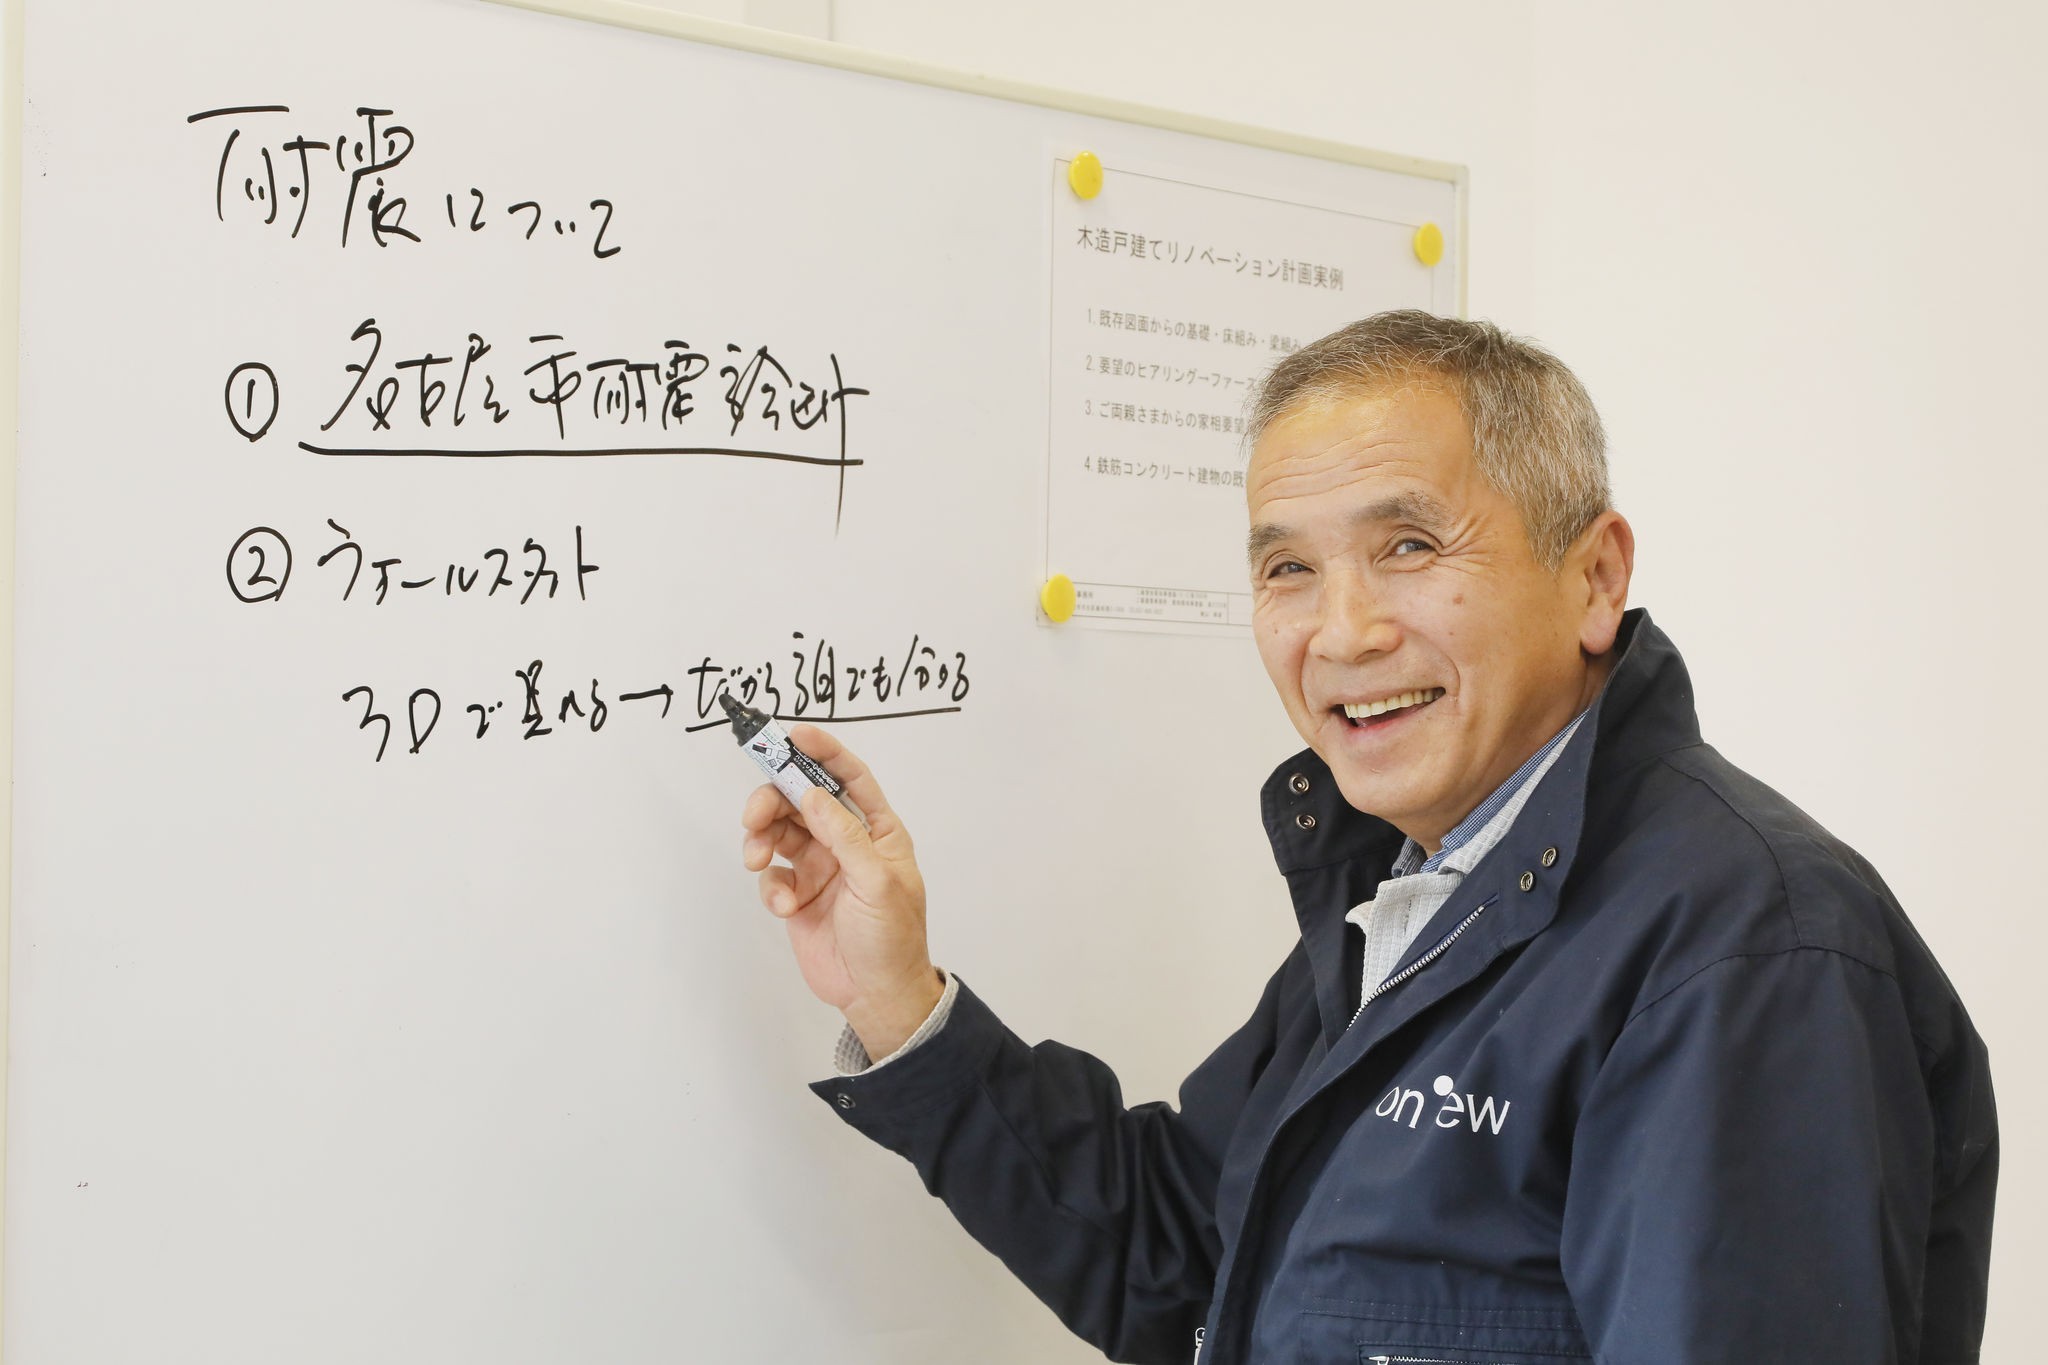 耐震について
① 名古屋市耐震診断
② ウォールスタット
3Dで見れる→だから誰でも分かる
木造戸建てリノベーション計画実例
1. 既存図面からの基礎・床組み・梁組み
2. 要望のヒアリング→ファース
3. ご両親さまからの家相要望
4. 鉄筋コンクリート建物の既
事務所
on ew